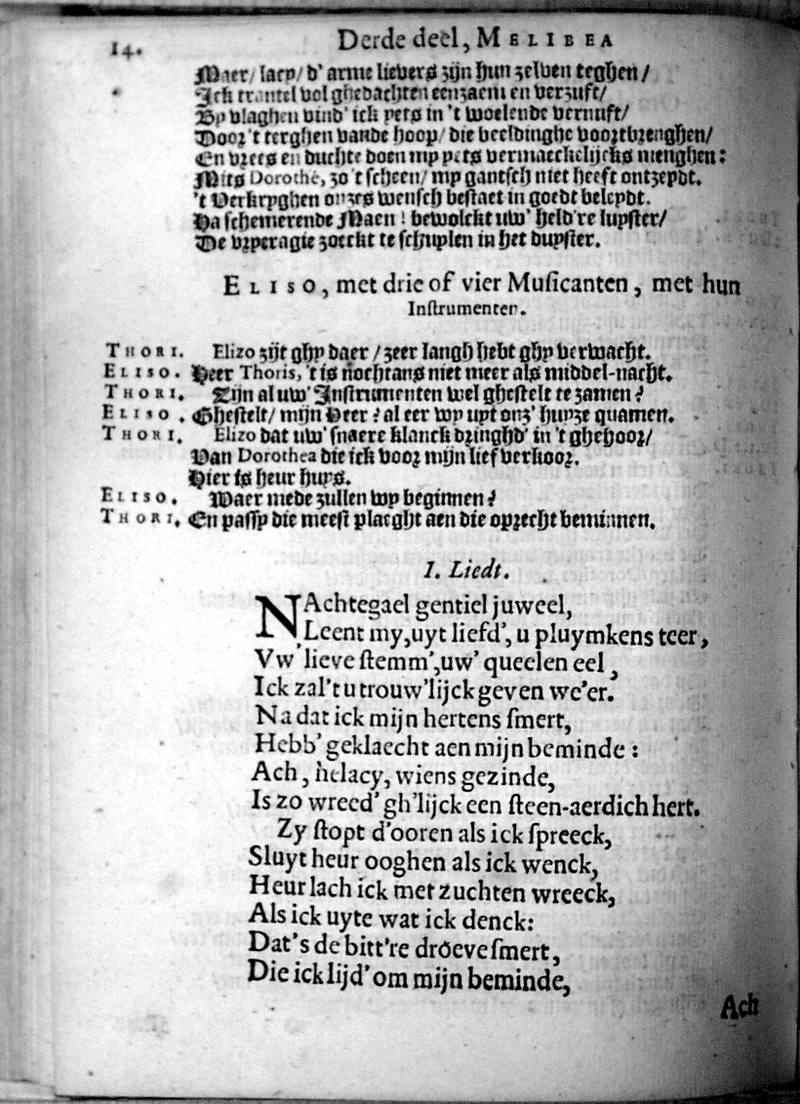 14. Derde deel, MELIBEA
Maer/ laey/ d' arme lievers zijn hun zelven teghen/
Ick trantel vol ghedachten eenzaem en verzuft/
By vlaghen vind' ick yets in 't woelende vernuft/
Door 't terghen vande hoop/ die beeldinghe voortbrenghen/
En vrees en duchte doen my yets vermaeckelijcks menghen:
Mits Dorothé, zo 't scheen/ my gantsch niet heeft ontzeydt.
't Verkryghen onzes wensch bestaet in goedt beleydt.
Ha schemerende Maen! bewolckt uw' held're luyster/
De vryeragie zoeckt te schuylen in het duyster.
ELISO, met drie of vier Musicanten, met hun
Instrumenten.
THORI. Elizo zijt ghy daer / zeer langh hebt ghy verwacht.
ELISO. Heer Thoris, 't is nochtans niet meer als middel-nacht.
THORI. Zijn al uw' Instrumenten wel ghestelt te zamen?
ELISO. Ghestelt/ mijn Heer? al eer wy uyt onz' huyze quamen.
THORI. Elizo dat uw' snaere klanck dringhd' in 't ghehoor/
Van Dorothea die ick voor mijn lief verkoor.
Hier is heur huys.
ELISO. Waer mede zullen wy beginnen?
THORI. En passy die meest plaeght aen die oprecht beminnen.
I. Liedt.
NAchtegael gentiel juweel,
Leent my, uyt liefd', u pluymkens teer,
Vw' lieve stemm', uw' queelen eel,
Ick zal't u trouw'lijck geven we'er.
Na dat ick mijn hertens smert,
Hebb' geklaecht aen mijn beminde:
Ach, helacy, wiens gezinde,
Is zo wreed' gh'lijck een steen-aerdich hert.
Zy stopt d'ooren als ick spreeck,
Sluyt heur ooghen als ick wenck,
Heur lach ick met zuchten wreeck,
Als ick uyte wat ick denck:
Dat's de bitt're droeve smert,
Die ick lijd' om mijn beminde,
Ach